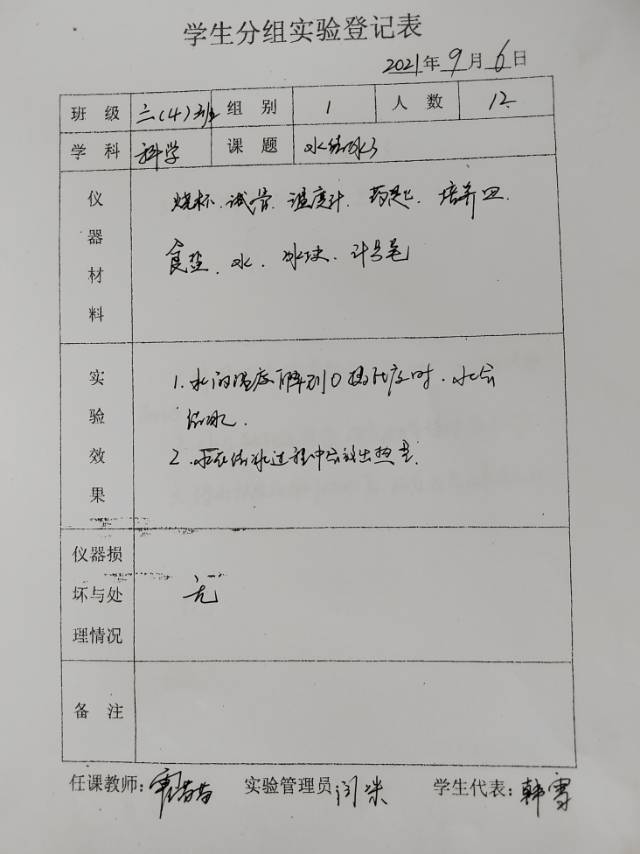 学生分组实验登记表
2021年9月6日
班级 三(4)班 组别 1 人数 12
学科 科学 课题 水结冰了
仪器材料 烧杯、试管、温度计、药匙、培养皿、
食盐、水、冰块、计号笔
实验效果 1.水的温度下降到0摄氏度时,水会
结冰。
2.水在结冰过程中会放出热量。
仪器损坏与处理情况 无
备注
任课教师: 实验管理员 闫 学生代表:韩雪